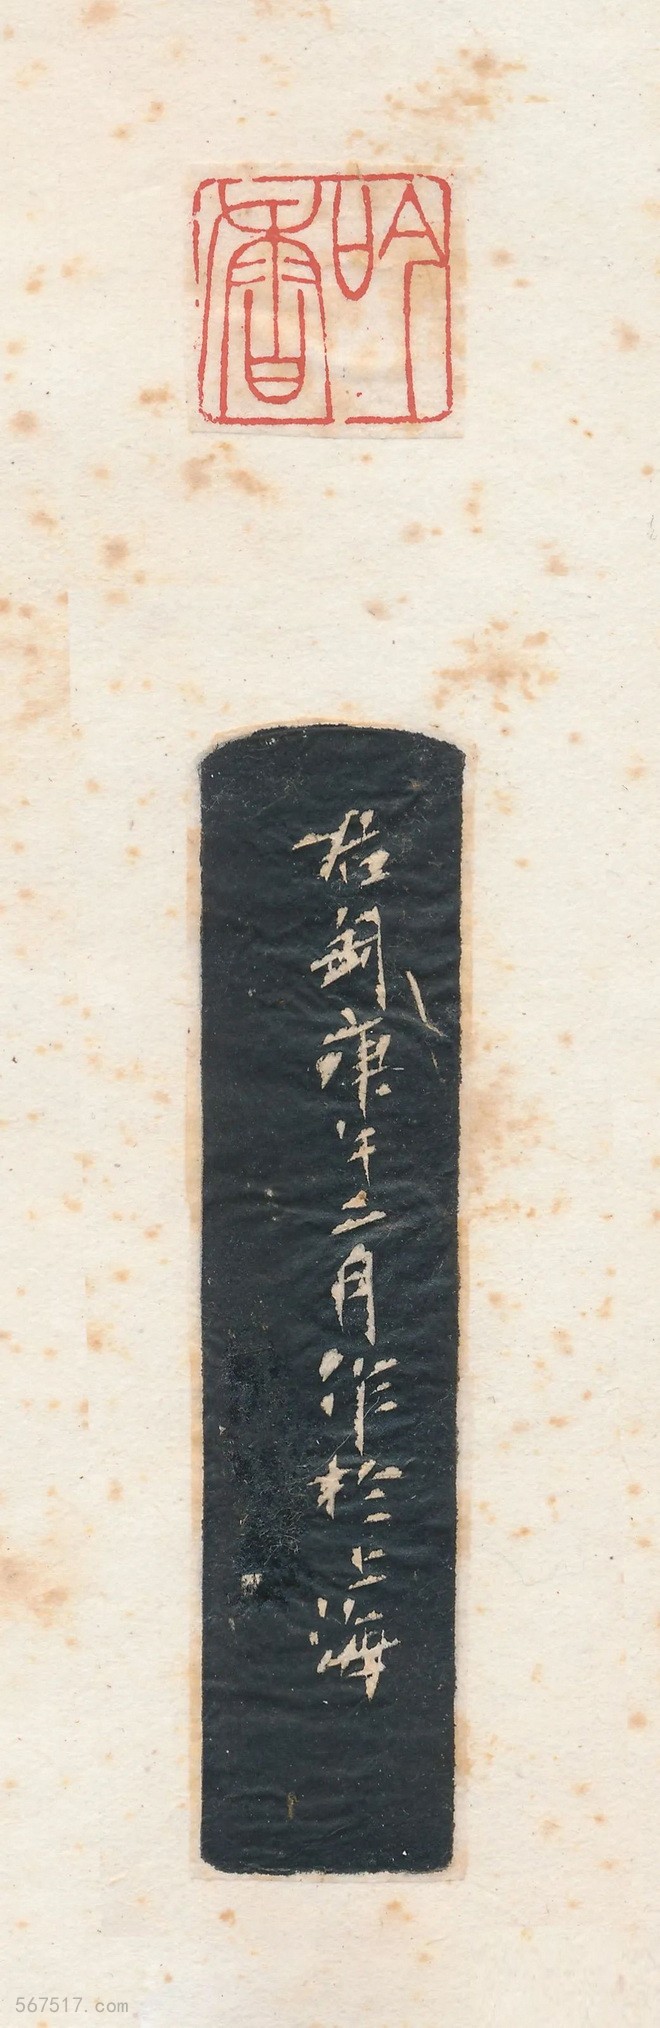 吟
君匋庚午二月作於上海
567517.com